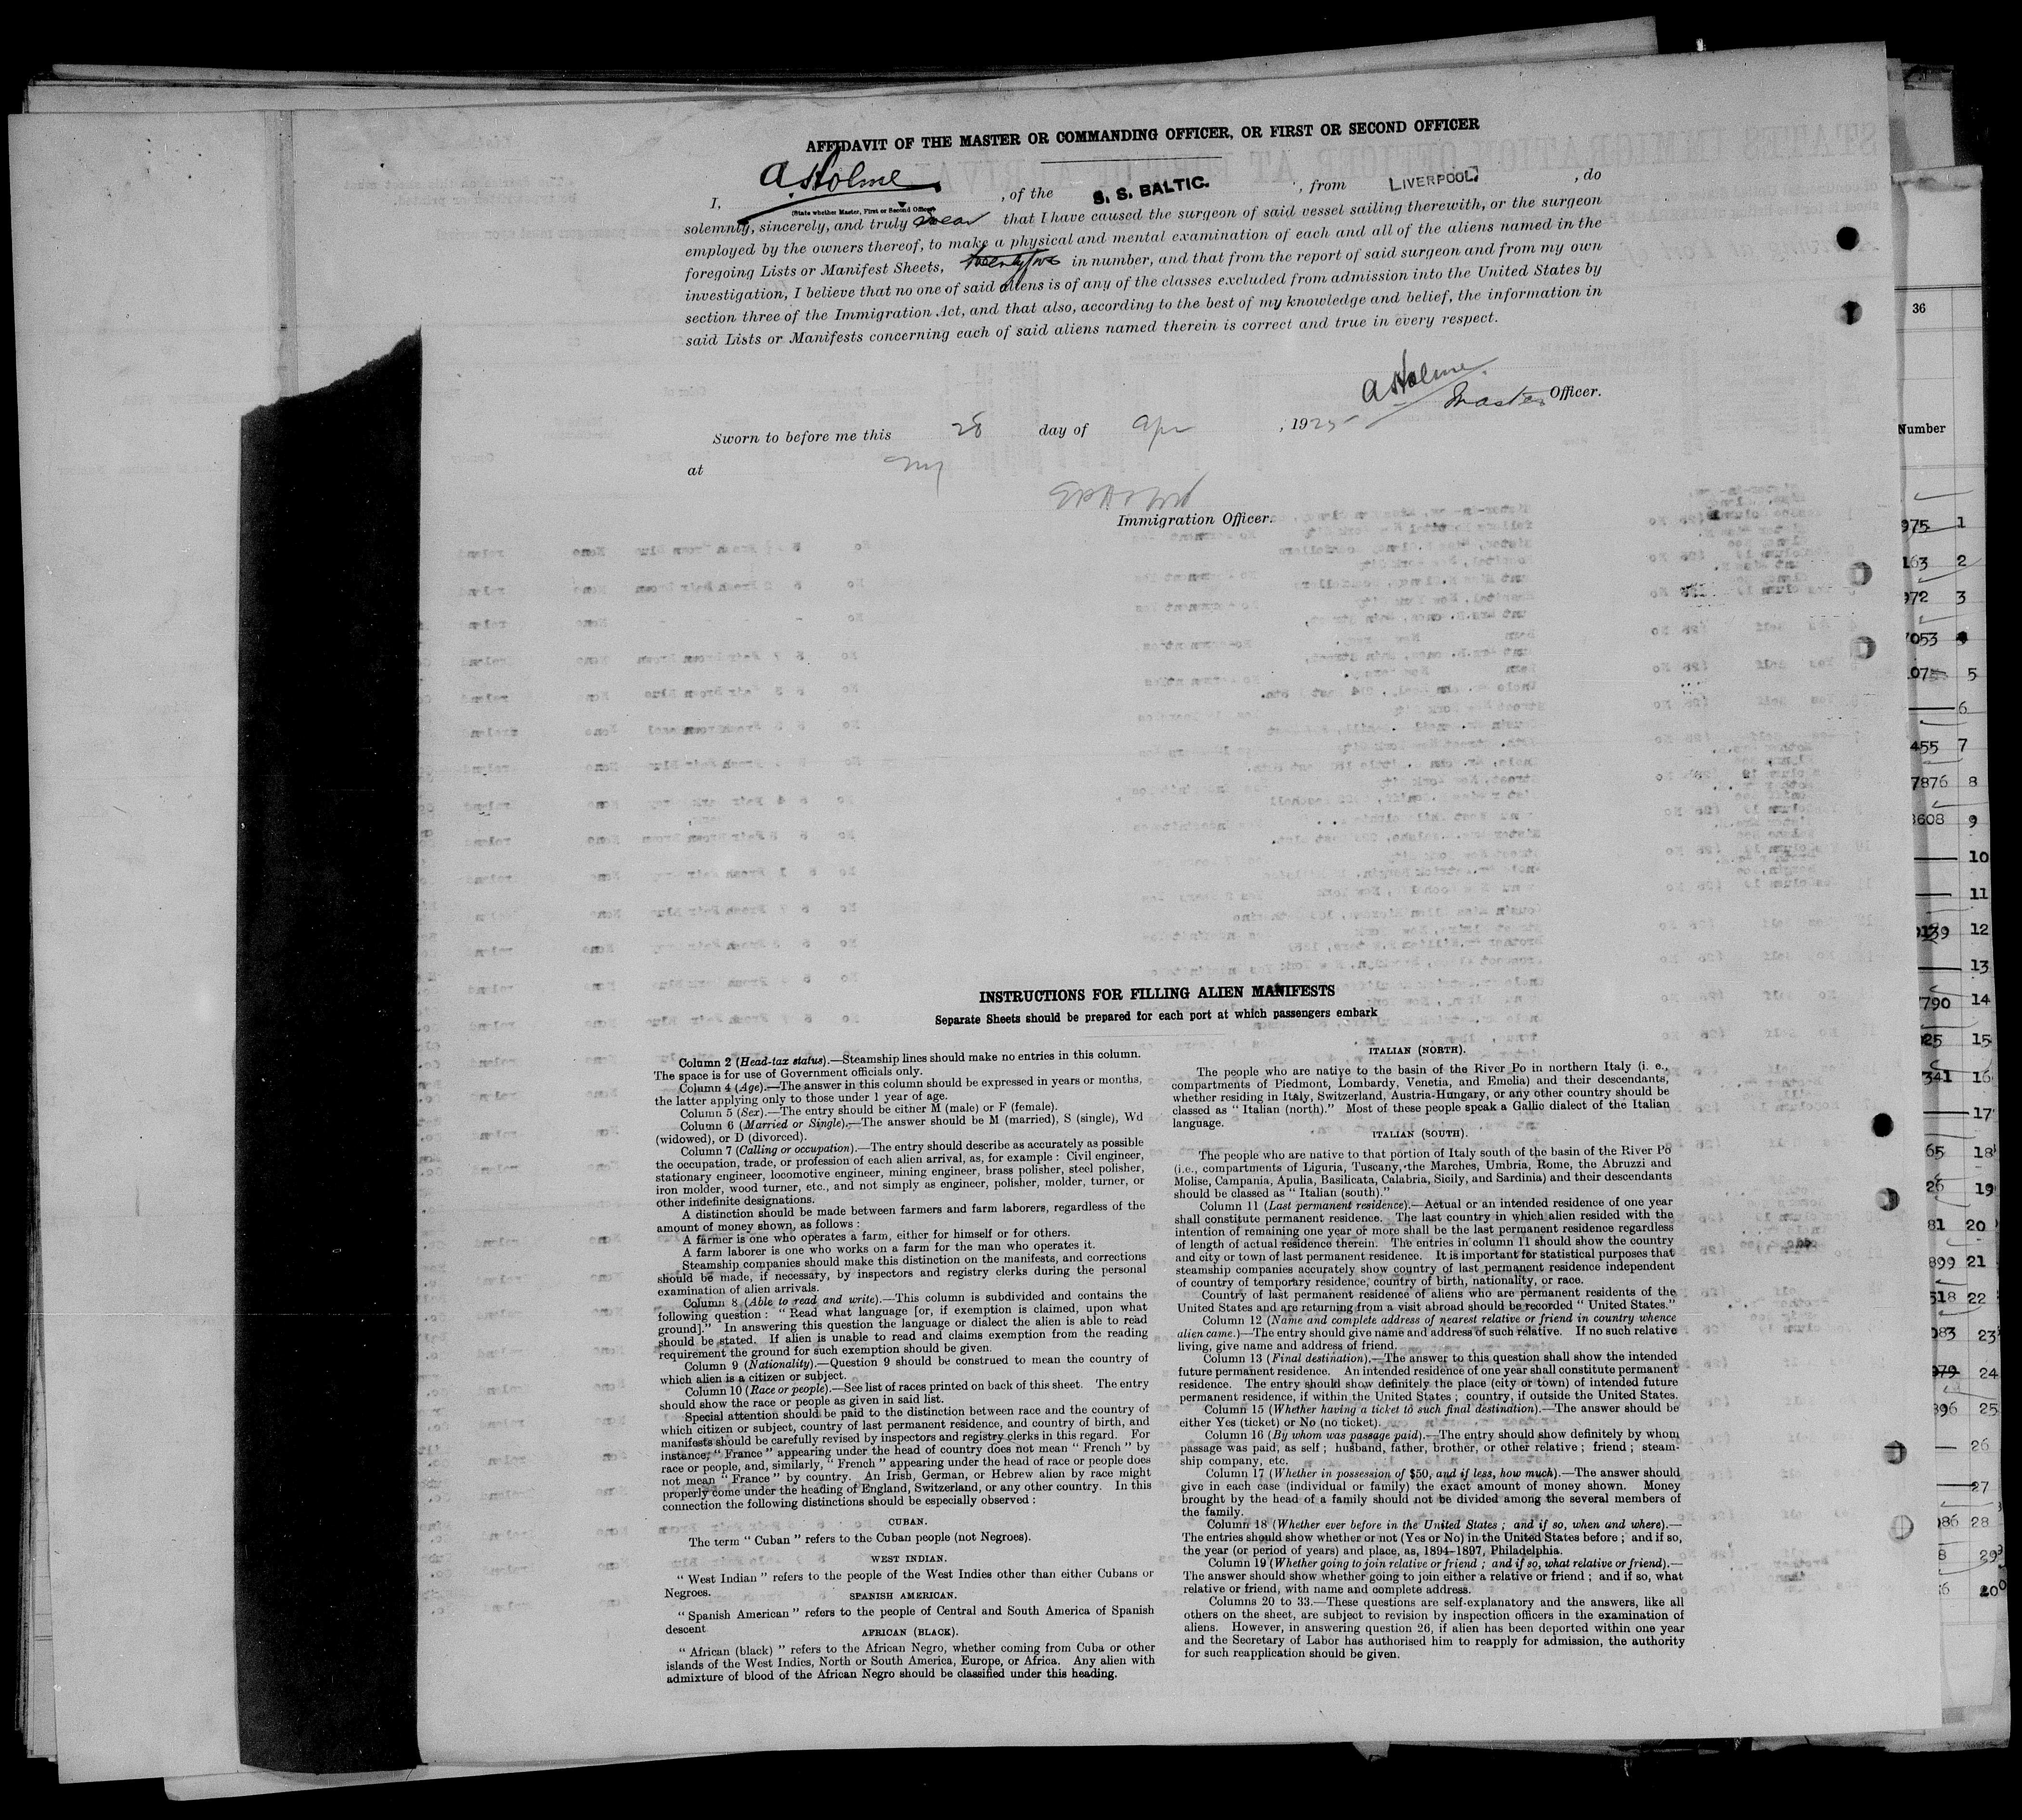 AFFIDAVIT OF THE MASTER OR COMMANDING OFFICER, OR FIRST OR SECOND OFFICER
I, A Holme, of the S. S. BALTIC. , from LIVERPOOL. , do
(State whether Master, First or Second Officer)
solemnly, sincerely, and truly swear that I have caused the surgeon of said vessel sailing therewith, or the surgeon
employed by the owners thereof, to make a physical and mental examination of each and all of the aliens named in the
foregoing Lists or Manifest Sheets, in number, and that from the report of said surgeon and from my own
investigation, I believe that no one of said aliens is of any of the classes excluded from admission into the United States by
section three of the Immigration Act, and that also, according to the best of my knowledge and belief, the information in
said Lists or Manifests concerning each of said aliens named therein is correct and true in every respect.
A Holme
Master Officer.
Sworn to before me this 28 day of Apr , 1925
at NY
Immigration Officer.
INSTRUCTIONS FOR FILLING ALIEN MANIFESTS
Separate Sheets should be prepared for each port at which passengers embark
Column 2 (Head-tax status).—Steamship lines should make no entries in this column.
The space is for use of Government officials only.
Column 4 (Age).—The answer in this column should be expressed in years or months,
the latter applying only to those under 1 year of age.
Column 5 (Sex).—The entry should be either M (male) or F (female).
Column 6 (Married or Single).—The answer should be M (married), S (single), Wd
(widowed), or D (divorced).
Column 7 (Calling or occupation).—The entry should describe as accurately as possible
the occupation, trade, or profession of each alien arrival, as, for example : Civil engineer,
stationary engineer, locomotive engineer, mining engineer, brass polisher, steel polisher,
iron molder, wood turner, etc., and not simply as engineer, polisher, molder, turner, or
other indefinite designations.
A distinction should be made between farmers and farm laborers, regardless of the
amount of money shown, as follows :
A farmer is one who operates a farm, either for himself or for others.
A farm laborer is one who works on a farm for the man who operates it.
Steamship companies should make this distinction on the manifests, and corrections
should be made, if necessary, by inspectors and registry clerks during the personal
examination of alien arrivals.
Column 8 (Able to read and write).—This column is subdivided and contains the
following question : " Read what language [or, if exemption is claimed, upon what
ground]." In answering this question the language or dialect the alien is able to read
should be stated. If alien is unable to read and claims exemption from the reading
requirement the ground for such exemption should be given.
Column 9 (Nationality).—Question 9 should be construed to mean the country of
which alien is a citizen or subject.
Column 10 (Race or people).—See list of races printed on back of this sheet. The entry
should show the race or people as given in said list.
Special attention should be paid to the distinction between race and the country of
which citizen or subject, country of last permanent residence, and country of birth, and
manifests should be carefully revised by inspectors and registry clerks in this regard. For
instance, " France " appearing under the head of country does not mean " French " by
race or people, and, similarly, " French " appearing under the head of race or people does
not mean " France " by country. An Irish, German, or Hebrew alien by race might
properly come under the heading of England, Switzerland, or any other country. In this
connection the following distinctions should be especially observed :
CUBAN.
The term " Cuban " refers to the Cuban people (not Negroes).
WEST INDIAN.
" West Indian " refers to the people of the West Indies other than either Cubans or
Negroes.
SPANISH AMERICAN.
" Spanish American " refers to the people of Central and South America of Spanish
descent
AFRICAN (BLACK).
" African (black) " refers to the African Negro, whether coming from Cuba or other
islands of the West Indies, North or South America, Europe, or Africa. Any alien with
admixture of blood of the African Negro should be classified under this heading.
ITALIAN (NORTH).
The people who are native to the basin of the River Po in northern Italy (i. e.,
compartments of Piedmont, Lombardy, Venetia, and Emelia) and their descendants,
whether residing in Italy, Switzerland, Austria-Hungary, or any other country should be
classed as " Italian (north)." Most of these people speak a Gallic dialect of the Italian
language.
ITALIAN (SOUTH).
The people who are native to that portion of Italy south of the basin of the River Po
(i.e., compartments of Liguria, Tuscany, the Marches, Umbria, Rome, the Abruzzi and
Molise, Campania, Apulia, Basilicata, Calabria, Sicily, and Sardinia) and their descendants
should be classed as " Italian (south)."
Column 11 (Last permanent residence).—Actual or an intended residence of one year
shall constitute permanent residence. The last country in which alien resided with the
intention of remaining one year or more shall be the last permanent residence regardless
of length of actual residence therein. The entries in column 11 should show the country
and city or town of last permanent residence. It is important for statistical purposes that
steamship companies accurately show country of last permanent residence independent
of country of temporary residence, country of birth, nationality, or race.
Country of last permanent residence of aliens who are permanent residents of the
United States and are returning from a visit abroad should be recorded " United States."
Column 12 (Name and complete address of nearest relative or friend in country whence
alien came.)—The entry should give name and address of such relative. If no such relative
living, give name and address of friend.
Column 13 (Final destination).—The answer to this question shall show the intended
future permanent residence. An intended residence of one year shall constitute permanent
residence. The entry should show definitely the place (city or town) of intended future
permanent residence, if within the United States ; country, if outside the United States.
Column 15 (Whether having a ticket to such final destination).—The answer should be
either Yes (ticket) or No (no ticket).
Column 16 (By whom was passage paid).—The entry should show definitely by whom
passage was paid, as self ; husband, father, brother, or other relative ; friend ; steam-
ship company, etc.
Column 17 (Whether in possession of $50, and if less, how much).—The answer should
give in each case (individual or family) the exact amount of money shown. Money
brought by the head of a family should not be divided among the several members of
the family.
Column 18 (Whether ever before in the United States ; and if so, when and where).—
The entries should show whether or not (Yes or No) in the United States before ; and if so,
the year (or period of years) and place, as, 1894-1897, Philadelphia.
Column 19 (Whether going to join relative or friend ; and if so, what relative or friend).—
The answer should show whether going to join either a relative or friend ; and if so, what
relative or friend, with name and complete address.
Columns 20 to 33.—These questions are self-explanatory and the answers, like all
others on the sheet, are subject to revision by inspection officers in the examination of
aliens. However, in answering question 26, if alien has been deported within one year
and the Secretary of Labor has authorised him to reapply for admission, the authority
for such reapplication should be given.
36
Number
975 1
163 2
972 3
7053
07 5
6
455 7
7876 8
3608 9
10
11
139 12
13
790 14
025 15
341 16
17
65 18
26 19
81 20
899 21
518 22
083 23
979 24
396 25
26
27
086 28
8 29
6